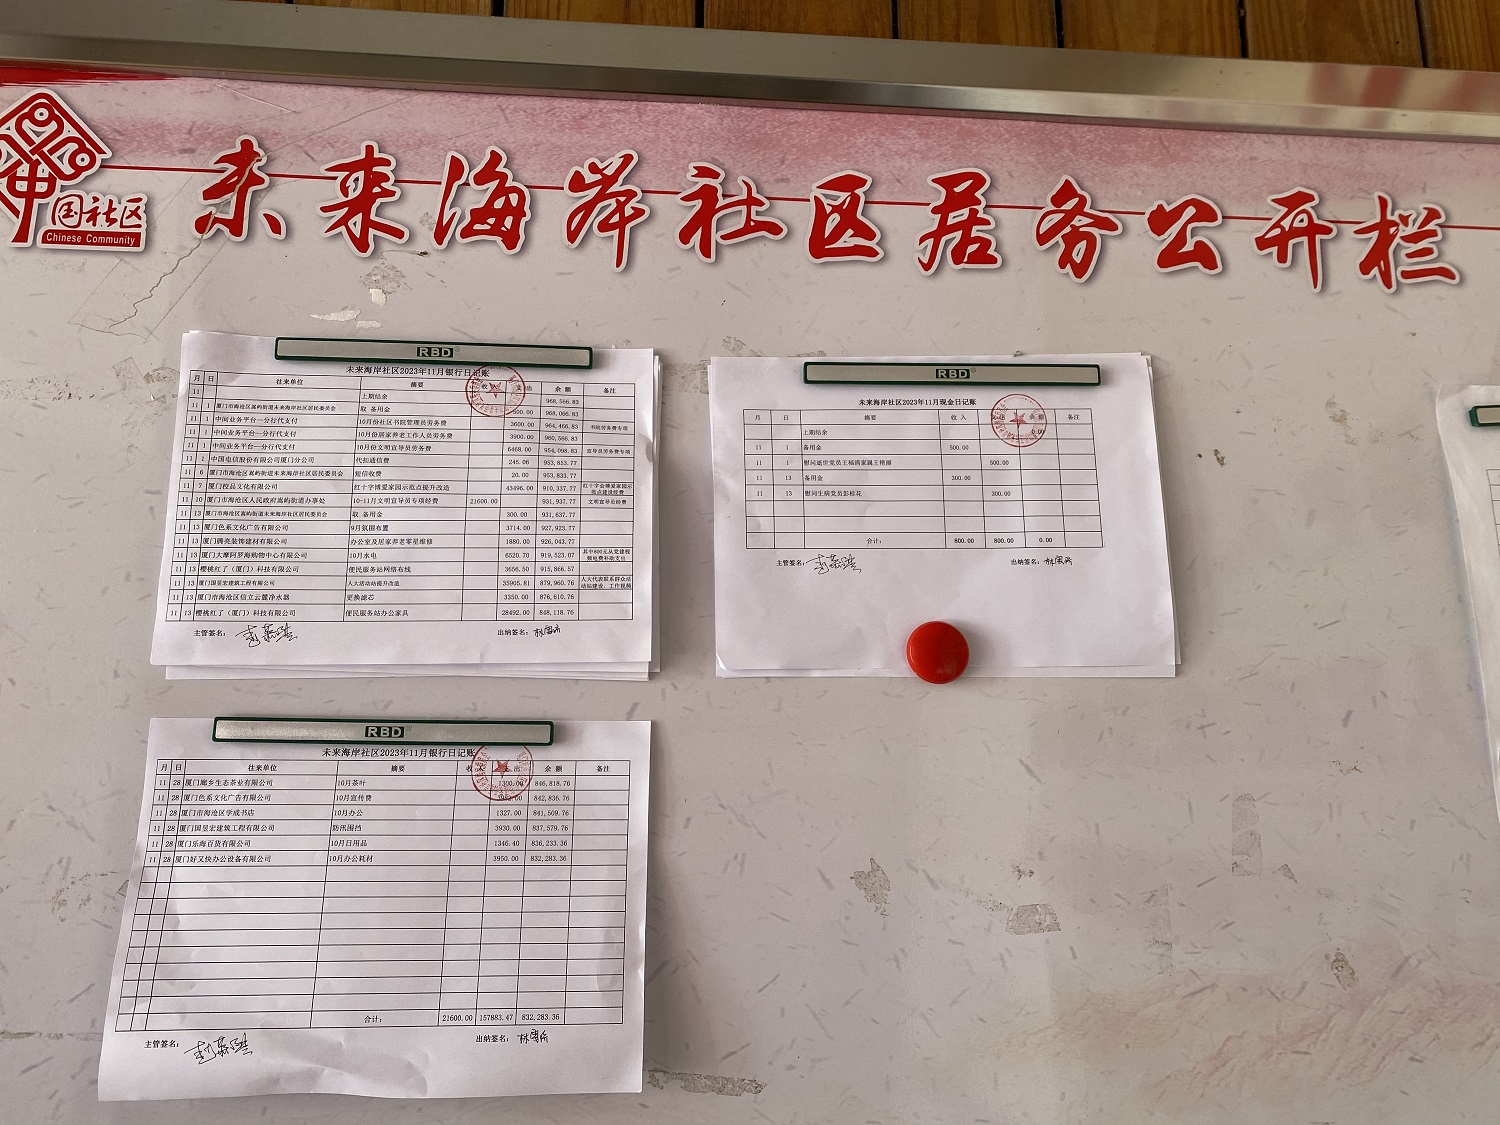 中国社区
Chinese Community
未来海岸社区居务公开栏
RBD
未来海岸社区2023年11月银行日记账
月 日 往来单位 摘要 收 支出 余额 备注
11 上期结余 968,566.83
11 1 厦门市海沧区嵩屿街道未来海岸社区居民委员会 取 备用金 500.00 968,066.83
11 1 中间业务平台—分行代支付 10月份社区书院管理员劳务费 3600.00 964,466.83 书院劳务费专项
11 1 中间业务平台—分行代支付 10月份居家养老工作人员劳务费 3900.00 960,566.83
11 1 中间业务平台—分行代支付 10月份文明宣导员劳务费 6468.00 954,098.83 宣导员劳务费专项
11 1 中国电信股份有限公司厦门分公司 代扣通信费 245.06 953,853.77
11 6 厦门市海沧区嵩屿街道未来海岸社区居民委员会 短信收费 20.00 953,833.77
11 7 厦门校品文化有限公司 红十字博爱家园示范点提升改造 43496.00 910,337.77 红十字会博爱家园示范点建设经费
11 10 厦门市海沧区人民政府嵩屿街道办事处 10-11月文明宣导员专项经费 21600.00 931,937.77 文明宣导员经费
11 13 厦门市海沧区嵩屿街道未来海岸社区居民委员会 取 备用金 300.00 931,637.77
11 13 厦门色系文化广告有限公司 9月氛围布置 3714.00 927,923.77
11 13 厦门腾亮装饰建材有限公司 办公室及居家养老零星维修 1880.00 926,043.77
11 13 厦门大摩阿罗海购物中心有限公司 10月水电 6520.70 919,523.07 其中800元从党建视频电费补助支出
11 13 樱桃红了（厦门）科技有限公司 便民服务站网络布线 3656.50 915,866.57
11 13 厦门国昱宏建筑工程有限公司 人大活动站提升改造 35905.81 879,960.76 人大代表联系群众活动站建设、工作视频
11 13 厦门市海沧区信立云麓净水器 更换滤芯 3350.00 876,610.76
11 13 樱桃红了（厦门）科技有限公司 便民服务站办公家具 28492.00 848,118.76
主管签名： 出纳签名：
RBD
未来海岸社区2023年11月现金日记账
月 日 摘要 收入 出 余额 备注
上期结余 0.00
11 1 备用金 500.00
11 1 慰问逝世党员王福满家属王艳丽 500.00
11 13 备用金 300.00
11 13 慰问生病党员彭桂花 300.00
合计： 800.00 800.00 0.00
主管签名： 出纳签名：
RBD
未来海岸社区2023年11月银行日记账
月 日 往来单位 摘要 收 出 余额 备注
11 28 厦门廊乡生态茶业有限公司 10月茶叶 1300.00 846,818.76
11 28 厦门色系文化广告有限公司 10月宣传费 842,836.76
11 28 厦门市海沧区学成书店 10月办公 1327.00 841,509.76
11 28 厦门国昱宏建筑工程有限公司 防汛围挡 3930.00 837,579.76
11 28 厦门乐海百货有限公司 10月日用品 1346.40 836,233.36
11 28 厦门好又快办公设备有限公司 10月办公耗材 3950.00 832,283.36
合计： 21600.00 157883.47 832,283.36
主管签名： 出纳签名：